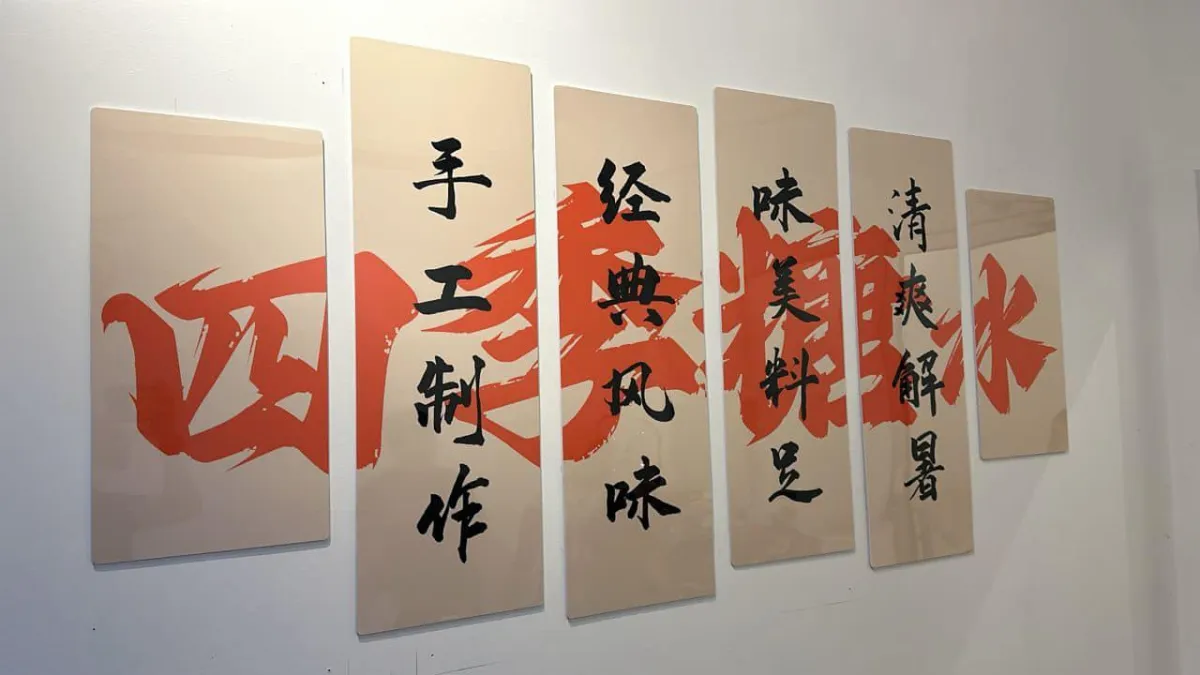 四季糖水
手工制作
经典风味
味美料足
清爽解暑